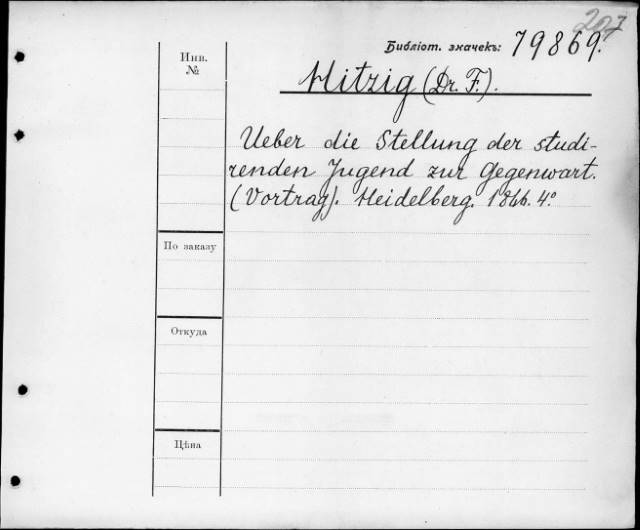 207
Инв.
№
Библіот. значекъ: 79869.
Hitzig (Dr. F.).
Ueber die Stellung der studi-
renden Jugend zur Gegenwart.
(Vortrag). Heidelberg. 1866. 4º
По заказу
Откуда
Цѣна